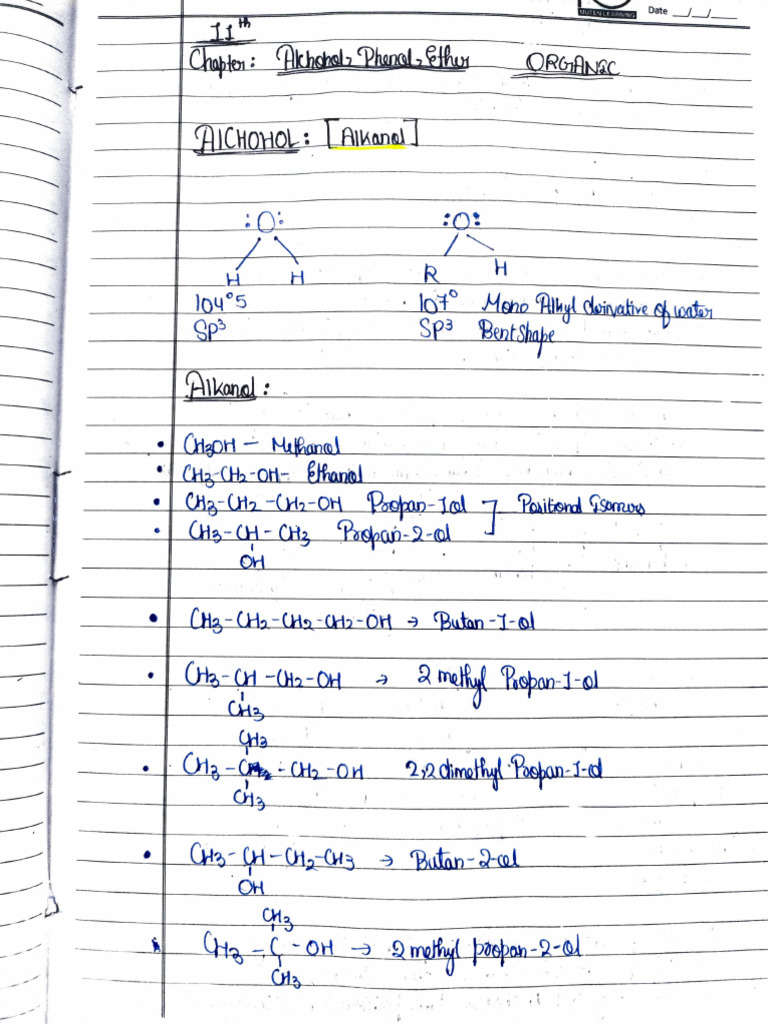 MUTEN LEARNING Date __/__/____
11th
Chapter: Alchohol, Phenol, Ether ORGANIC
AlCHOHOL: [Alkanol]
:O: :O:
H H R H
104°5 107° Mono Alkyl derivative of water
Sp3 Sp3 Bent Shape
Alkanol:
• CH3OH - Methanol
• CH3-CH2-OH- Ethanol
• CH3-CH2-CH2-OH Propan-1ol ] Positional Isomers
• CH3-CH-CH3 Propan-2-ol
OH
• CH3-CH2-CH2-CH2-OH → Butan-1-ol
• CH3-CH-CH2-OH → 2 methyl Propan-1-ol
CH3
CH3
• CH3-C-CH2-OH 2,2 dimethyl Propan-1-ol
CH3
• CH3-CH-CH2-CH3 → Butan-2-ol
OH
CH3
• CH3-C-OH → 2 methyl propan-2-ol
CH3